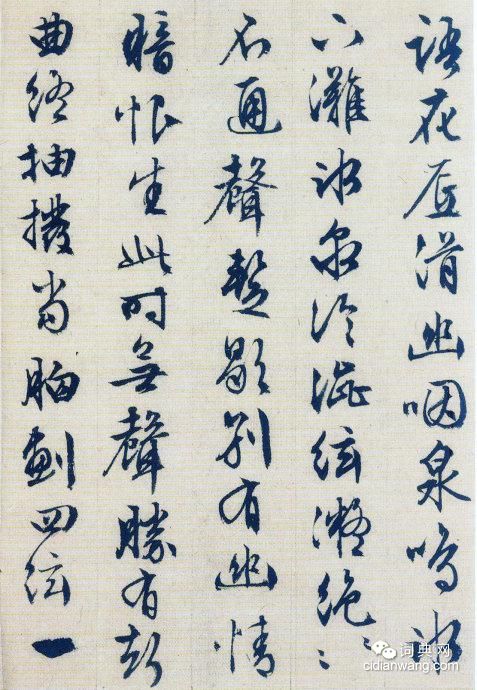 語花底滑幽咽泉鳴冰
下灘冰泉冷澀絃凝絕〻
不通聲暫歇別有幽情
暗恨生此时無聲勝有
曲終抽撥当胸劃四絃一
词典网
cidianwang.com